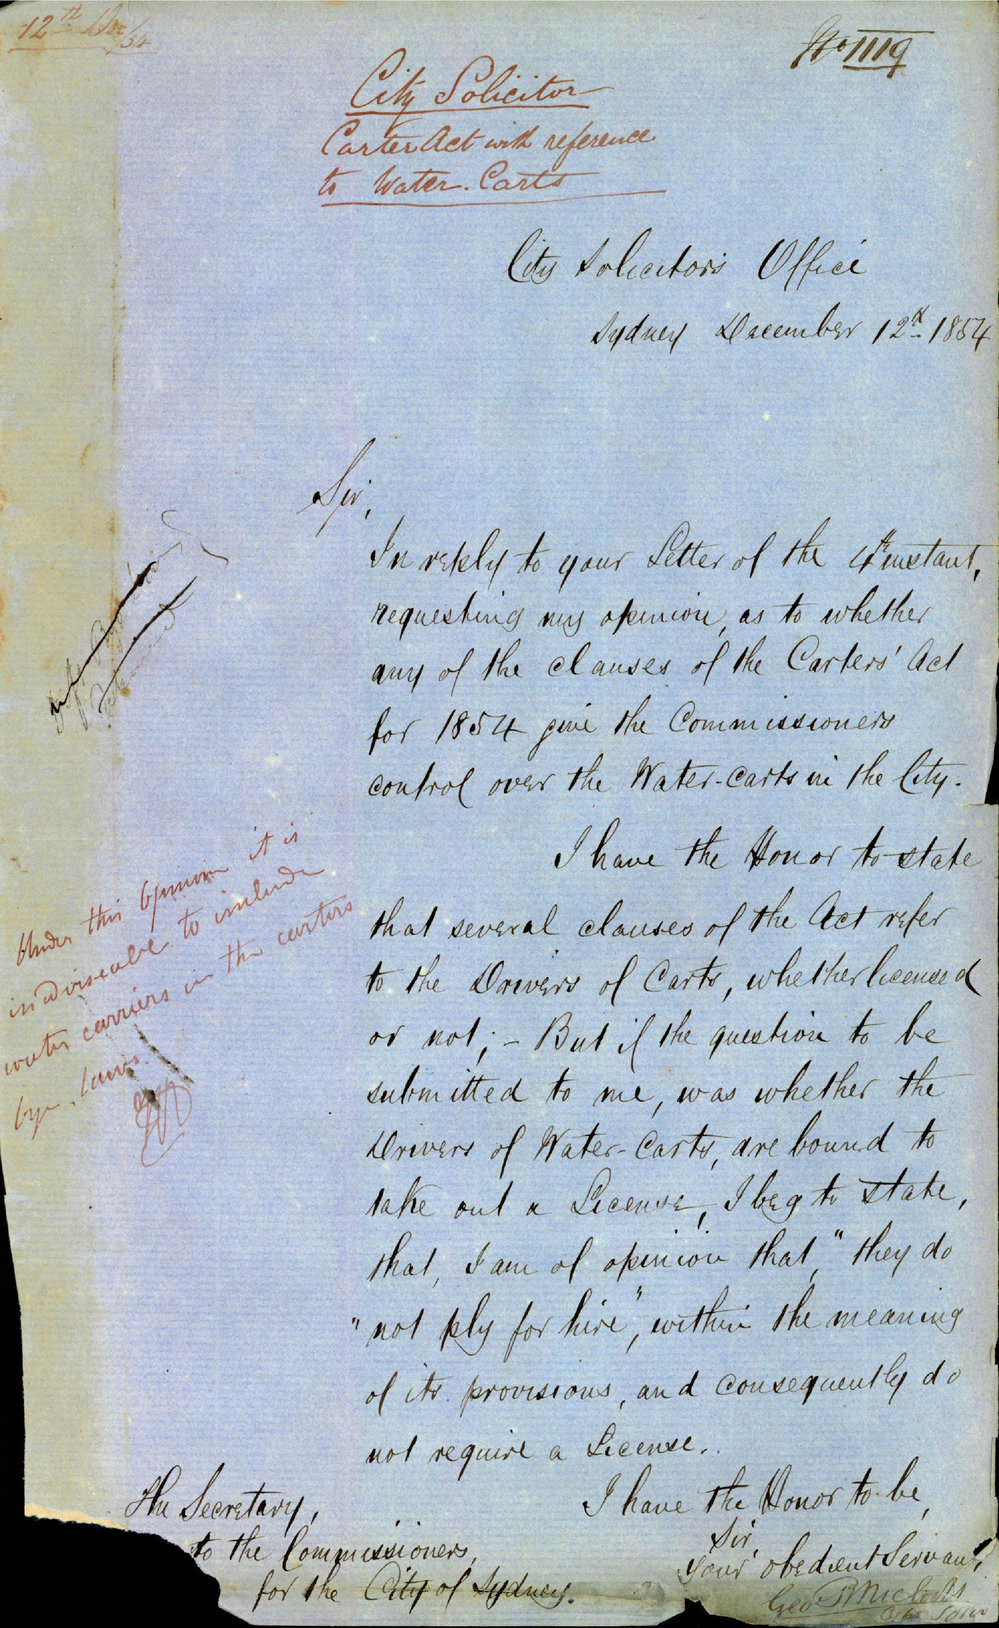 12th Dec/54
No 1119
City Solicitor
Carters Act with reference
to Water-Carts
City Solicitor's Office
Sydney December 12th 1854
Sir,
In reply to your Letter of the 4th instant,
requesting my opinion, as to whether
any of the clauses of the Carters' Act
for 1854 give the Commissioners
control over the Water-Carts in the City.
I have the Honor to state
that several clauses of the Act refer
to the Drivers of Carts, whether licensed
or not; - But if the question to be
submitted to me, was whether the
Drivers of Water-Carts, are bound to
take out a License, I beg to state,
that, I am of opinion that, "they do
"not ply for hire", within the meaning
of its provisions, and consequently do
not require a License.
I have the Honor to be,
Sir,
Your obedient Servant,
Geo R Nichols
City Solr
The Secretary,
to the Commissioners,
for the City of Sydney.
Under this Opinion it is
inadviseable to include
water carriers in the carters
bye-laws.